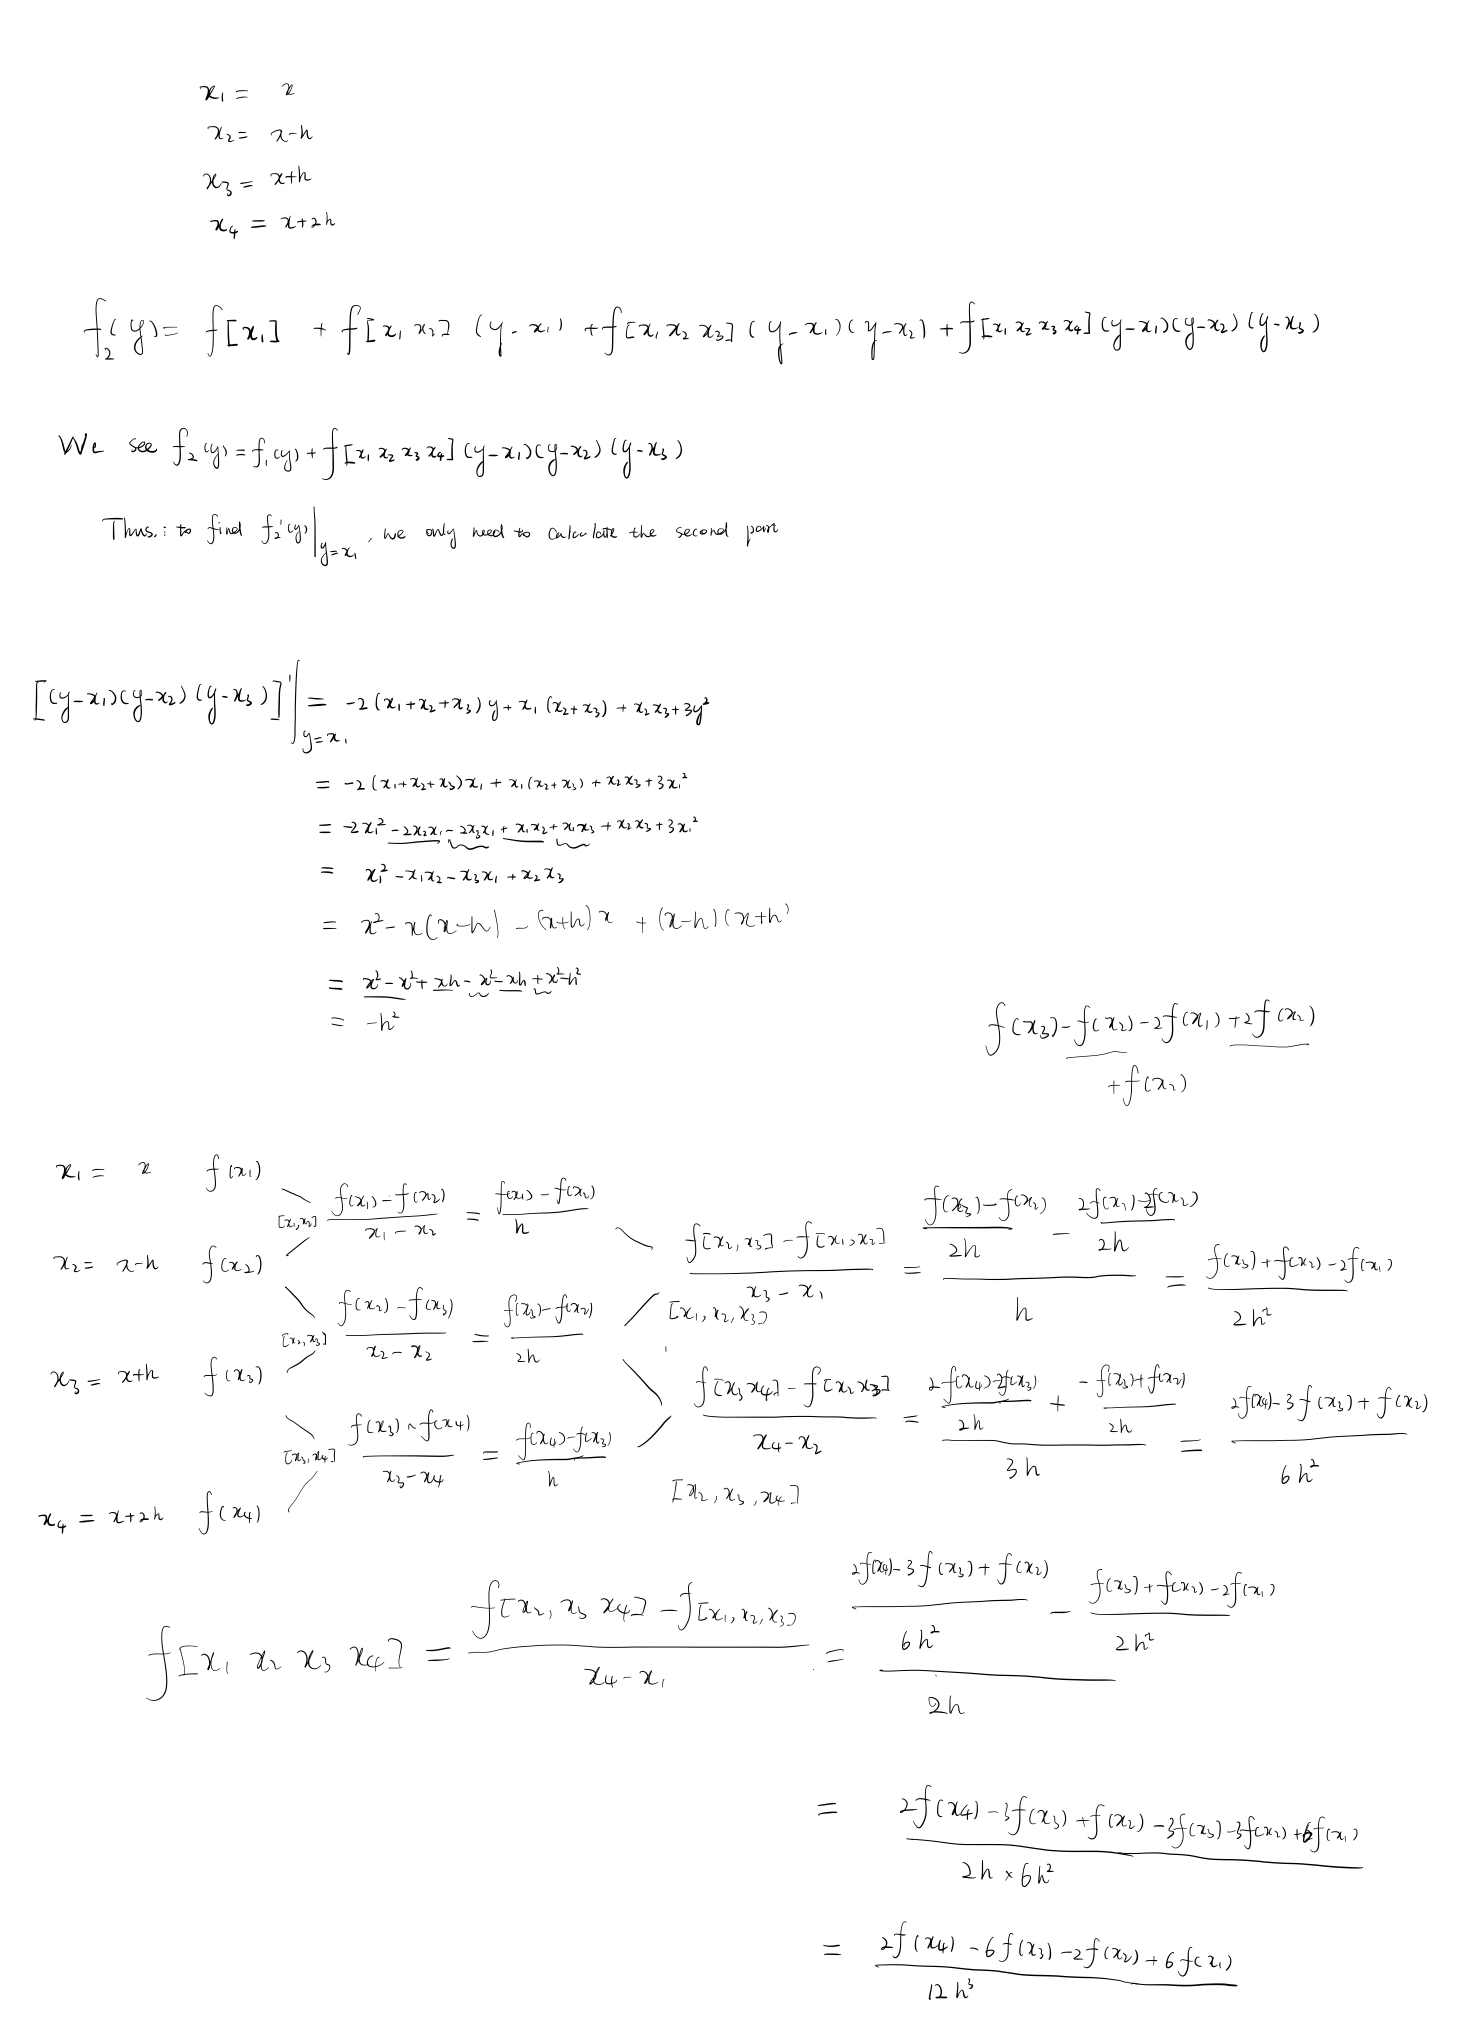 x₁ = x
x₂ = x-h
x₃ = x+h
x₄ = x+2h
f₂(y) = f[x₁] + f[x₁ x₂] (y-x₁) + f[x₁ x₂ x₃] (y-x₁)(y-x₂) + f[x₁ x₂ x₃ x₄] (y-x₁)(y-x₂)(y-x₃)
We see f₂(y) = f₁(y) + f[x₁ x₂ x₃ x₄] (y-x₁)(y-x₂)(y-x₃)
Thus.: to find f₂'(y)|y=x₁, we only need to calculate the second part
[(y-x₁)(y-x₂)(y-x₃)]'|y=x₁ = -2(x₁+x₂+x₃)y + x₁(x₂+x₃) + x₂x₃ + 3y²
= -2(x₁+x₂+x₃)x₁ + x₁(x₂+x₃) + x₂x₃ + 3x₁²
= -2x₁² - 2x₂x₁ - 2x₃x₁ + x₁x₂ + x₁x₃ + x₂x₃ + 3x₁²
= x₁² - x₁x₂ - x₃x₁ + x₂x₃
= x² - x(x-h) - (x+h)x + (x-h)(x+h)
= x² - x² + xh - x² - xh + x² - h²
= -h²
f(x₃) - f(x₂) - 2f(x₁) + 2f(x₂)
+ f(x₂)
x₁ = x f(x₁)
[x₁,x₂] (f(x₁) - f(x₂))/(x₁ - x₂) = (f(x₁) - f(x₂))/h
x₂ = x-h f(x₂)
(f[x₂,x₃] - f[x₁,x₂])/(x₃ - x₁) = ((f(x₃) - f(x₂))/2h - (2f(x₁) - 2f(x₂))/2h)/h = (f(x₃) + f(x₂) - 2f(x₁))/2h²
[x₁, x₂, x₃)
[x₂,x₃] (f(x₂) - f(x₃))/(x₂ - x₂) = (f(x₃) - f(x₂))/2h
x₃ = x+h f(x₃)
(f[x₃ x₄] - f[x₂ x₃])/(x₄ - x₂) = ((2f(x₄) - 2f(x₃))/2h + (-f(x₃) + f(x₂))/2h)/3h = (2f(x₄) - 3f(x₃) + f(x₂))/6h²
[x₂, x₃, x₄]
[x₃,x₄] (f(x₃) - f(x₄))/(x₃ - x₄) = (f(x₄) - f(x₃))/h
x₄ = x+2h f(x₄)
f[x₁ x₂ x₃ x₄] = (f[x₂, x₃ x₄] - f[x₁, x₂, x₃])/(x₄ - x₁) = ((2f(x₄) - 3f(x₃) + f(x₂))/6h² - (f(x₃) + f(x₂) - 2f(x₁))/2h²)/2h
= (2f(x₄) - 3f(x₃) + f(x₂) - 3f(x₃) - 3f(x₂) + 6f(x₁))/(2h × 6h²)
= (2f(x₄) - 6f(x₃) - 2f(x₂) + 6f(x₁))/12h³